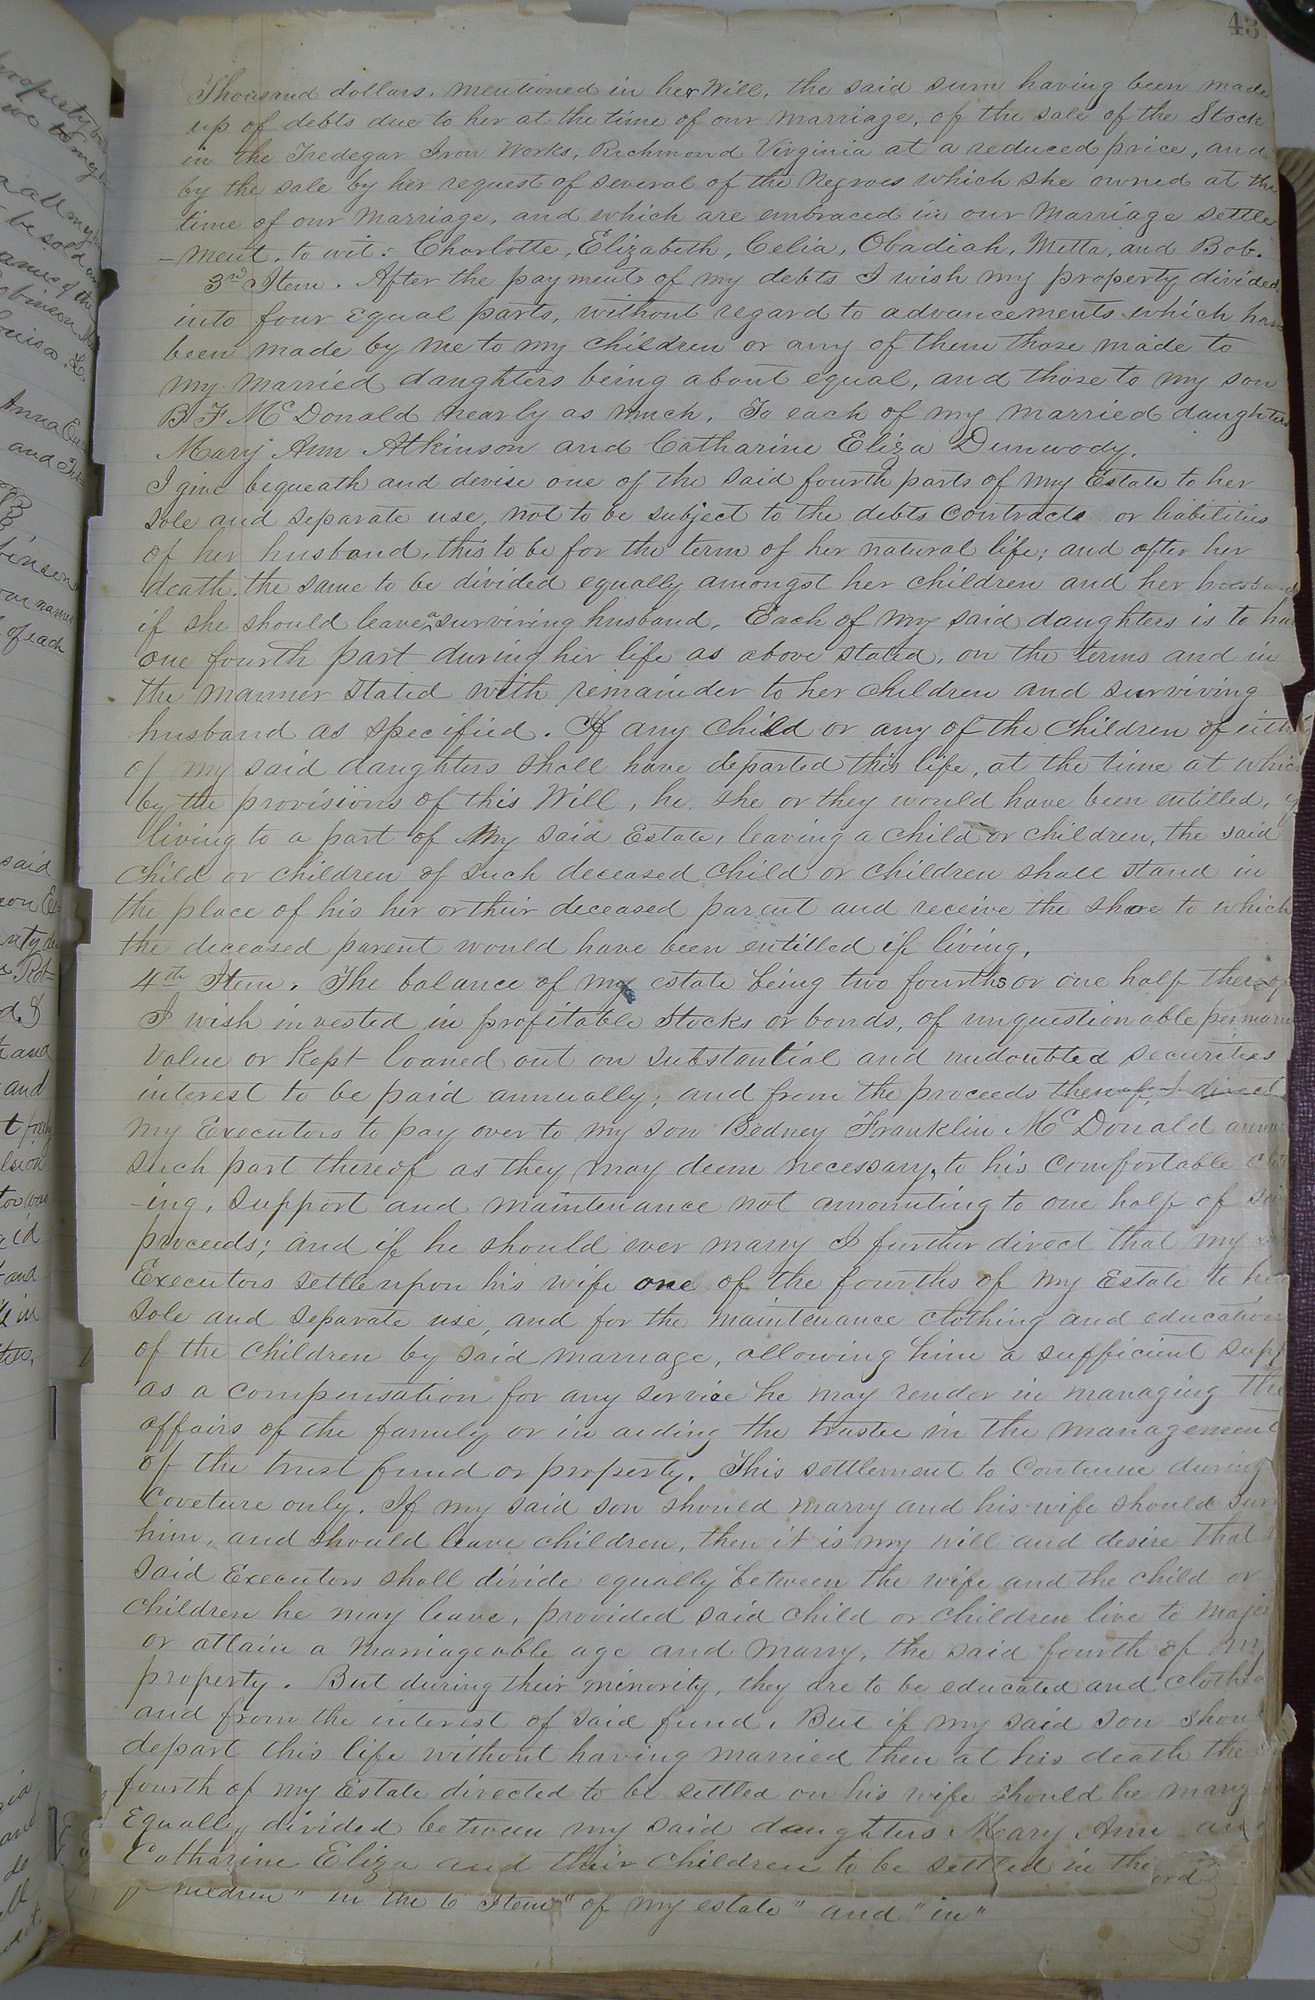 43
Thousand dollars, mentioned in her Will, the said sum having been made
up of debts due to her at the time of our marriage, of the sale of the Stock
in the Tredegar Iron Works, Richmond Virginia at a reduced price, and
by the sale by her request of several of the Negroes which she owned at the
time of our marriage, and which are embraced in our Marriage settle
-ment, to wit: Charlotte, Elizabeth, Celia, Obadiah, Metta, and Bob.
3rd Item. After the payment of my debts I wish my property divided
into four equal parts, without regard to advancements which have
been made by me to my children or any of them those made to
my married daughters being about equal, and those to my son
B F McDonald nearly as much. To each of my married daughters
Mary Ann Atkinson and Catharine Eliza Dunwody.
I give bequeath and devise one of the said fourth parts of my Estate to her
sole and separate use, not to be subject to the debts contracts or liabilities
of her husband, this to be for the term of her natural life; and after her
death, the same to be divided equally amongst her children and her husband
if she should leave a surviving husband. Each of my said daughters is to ha
one fourth part during her life as above stated, on the terms and in
the manner stated with remainder to her children and surviving
husband as specified. If any child or any of the children of eith
of my said daughters shall have departed this life, at the time at which
by the provisions of this Will, he, she or they would have been entitled,
living to a part of my said Estate, leaving a child or children, the said
child or children of such deceased child or children shall stand in
the place of his her or their deceased parent and receive the share to which
the deceased parent would have been entitled if living.
4th Item. The balance of my estate being two fourths or one half thereof
I wish invested in profitable stocks or bonds, of unquestionable perman
value or kept loaned out on substantial and undoubted securities
interest to be paid annually; and from the proceeds thereof, I direct
my Executors to pay over to my son Bedney Franklin McDonald annu
such part thereof as they may deem necessary, to his comfortable clo
-ing, support and maintenance not amounting to one half of said
proceeds; and if he should ever marry I further direct that my
Executors settle upon his wife one of the fourths of my Estate to her
sole and separate use, and for the maintenance clothing and education
of the children by said marriage, allowing him a sufficient supp
as a compensation for any service he may render in managing the
affairs of the family or in aiding the trustee in the management
of the trust fund or property. This settlement to continue during
coveture only. If my said son should marry and his wife should sur
him, and should leave children, then it is my will and desire that
said Executors shall divide equally between the wife and the child or
children he may leave, provided said child or children live to major
or attain a marriageable age and marry, the said fourth of my
property. But during their minority, they are to be educated and clothed
and from the interest of said fund. But if my said son shou
depart this life without having married then at his death the
fourth of my Estate directed to be settled on his wife should he marry
Equally divided between my said daughters Mary Ann and
Catharine Eliza and their children to be settled in the
"in the 6 Item" of my estate" and "in"